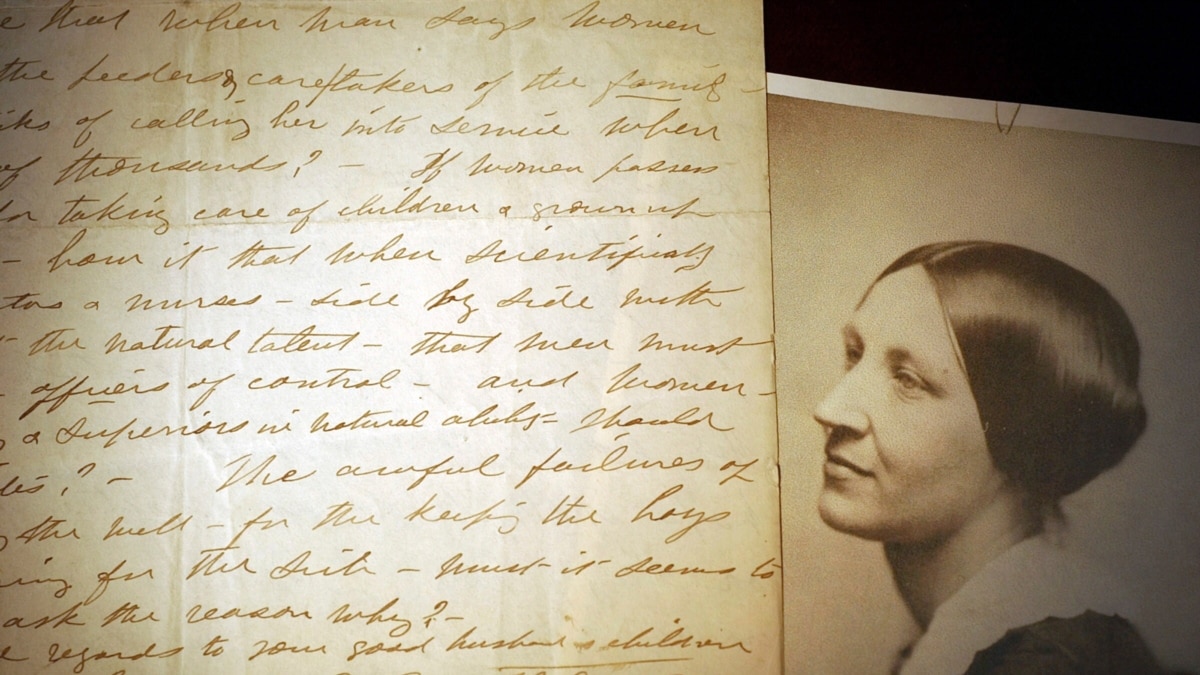 e that when man says women
the feeders & caretakers of the famil-
iks of calling her into service when
of thousands? - If women possess
for taking care of children & grown up
- how is it that when scientifically
tors & nurses - side by side with
the natural talent - that men must
officers of control - and women -
& superiors in natural ability - should
ties? - The awful failures of
the well - for the keeping the boys
ing for the sick - must it seems to
ask the reason why? -
e regards to your good husband & children